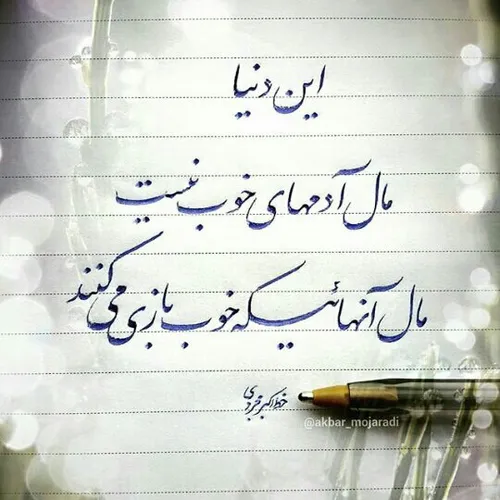 این دنیا
مال آدمهای خوب نیست
مال آنهائیکه خوب بازی می کنند
خط اکبر مجردی
@akbar_mojaradi